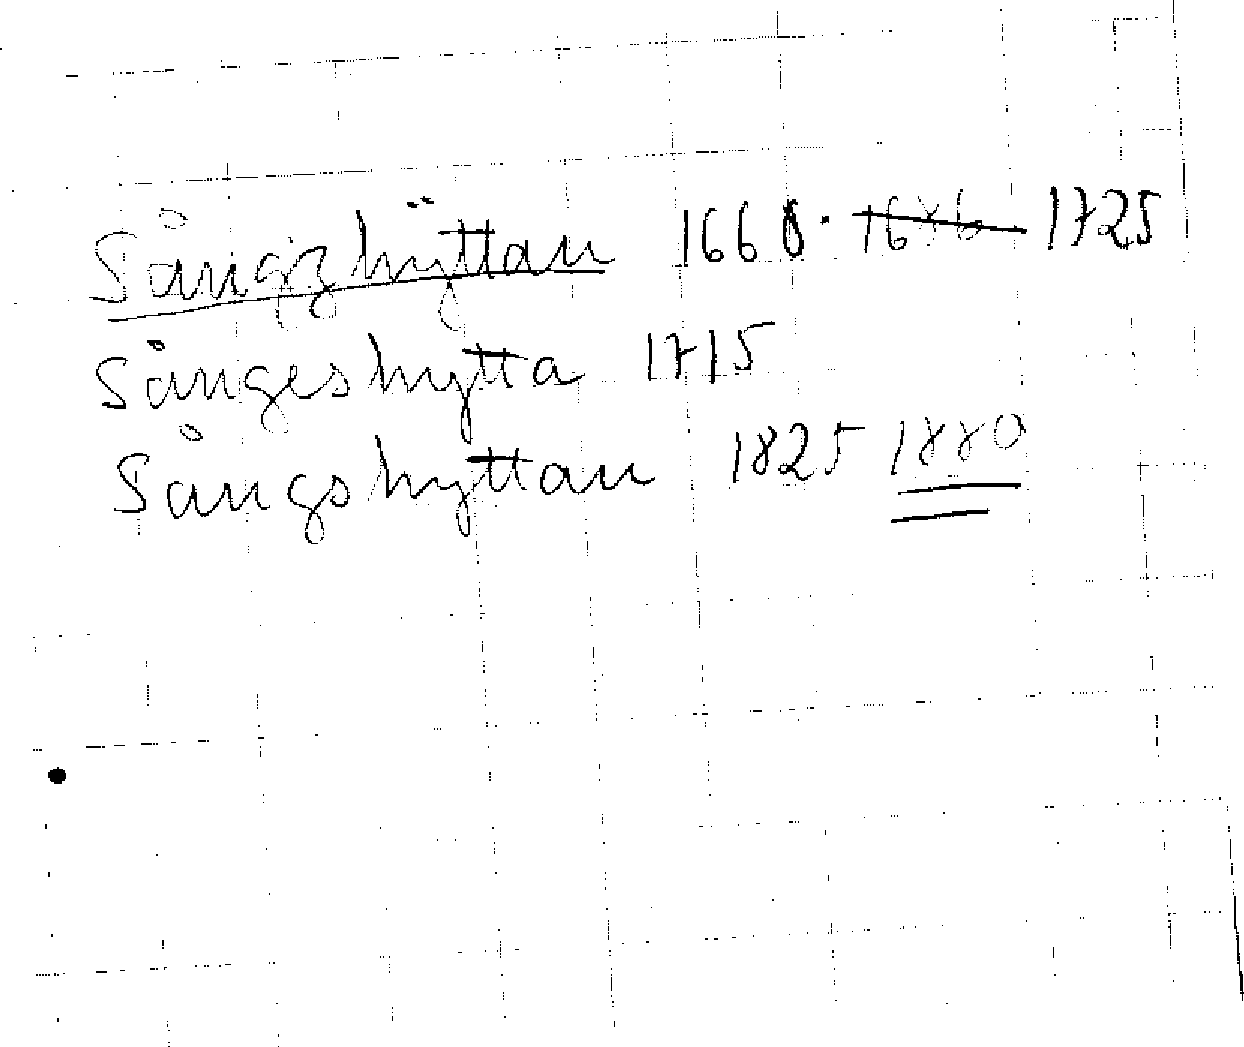 Sångzhÿttan 1660. 1686 1725
Sångeshytta 1715
Sångshyttan 1825 1880